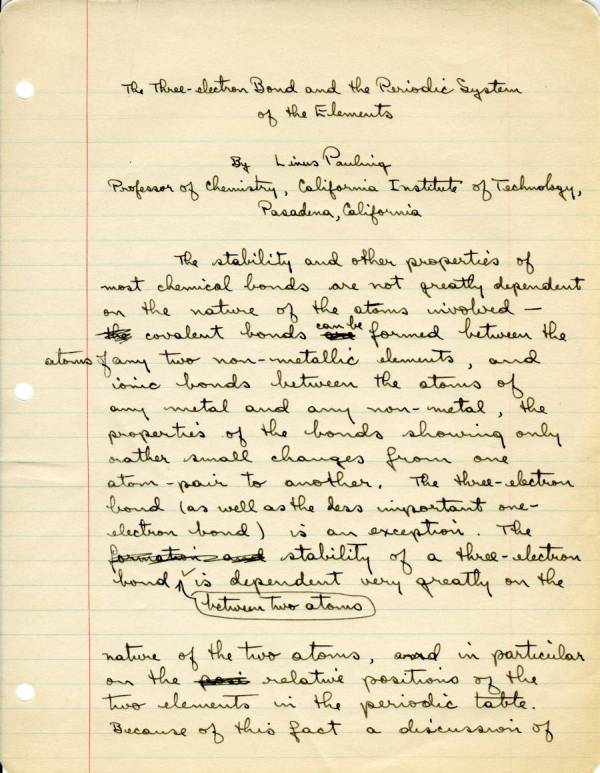 The Three-electron Bond and the Periodic System
of the Elements
By Linus Pauling
Professor of Chemistry, California Institute of Technology,
Pasadena, California
The stability and other properties of
most chemical bonds are not greatly dependent
on the nature of the atoms involved —
the covalent bonds are can be formed between the
atoms of any two non-metallic elements, and
ionic bonds between the atoms of
any metal and any non-metal, the
properties of the bonds showing only
rather small changes from one
atom-pair to another. The three-electron
bond (as well as the less important one-
electron bond) is an exception. The
formation and stability of a three-electron
bond is dependent very greatly on the
between two atoms
nature of the two atoms, and in particular
on the posi relative positions of the
two elements in the periodic table.
Because of this fact a discussion of